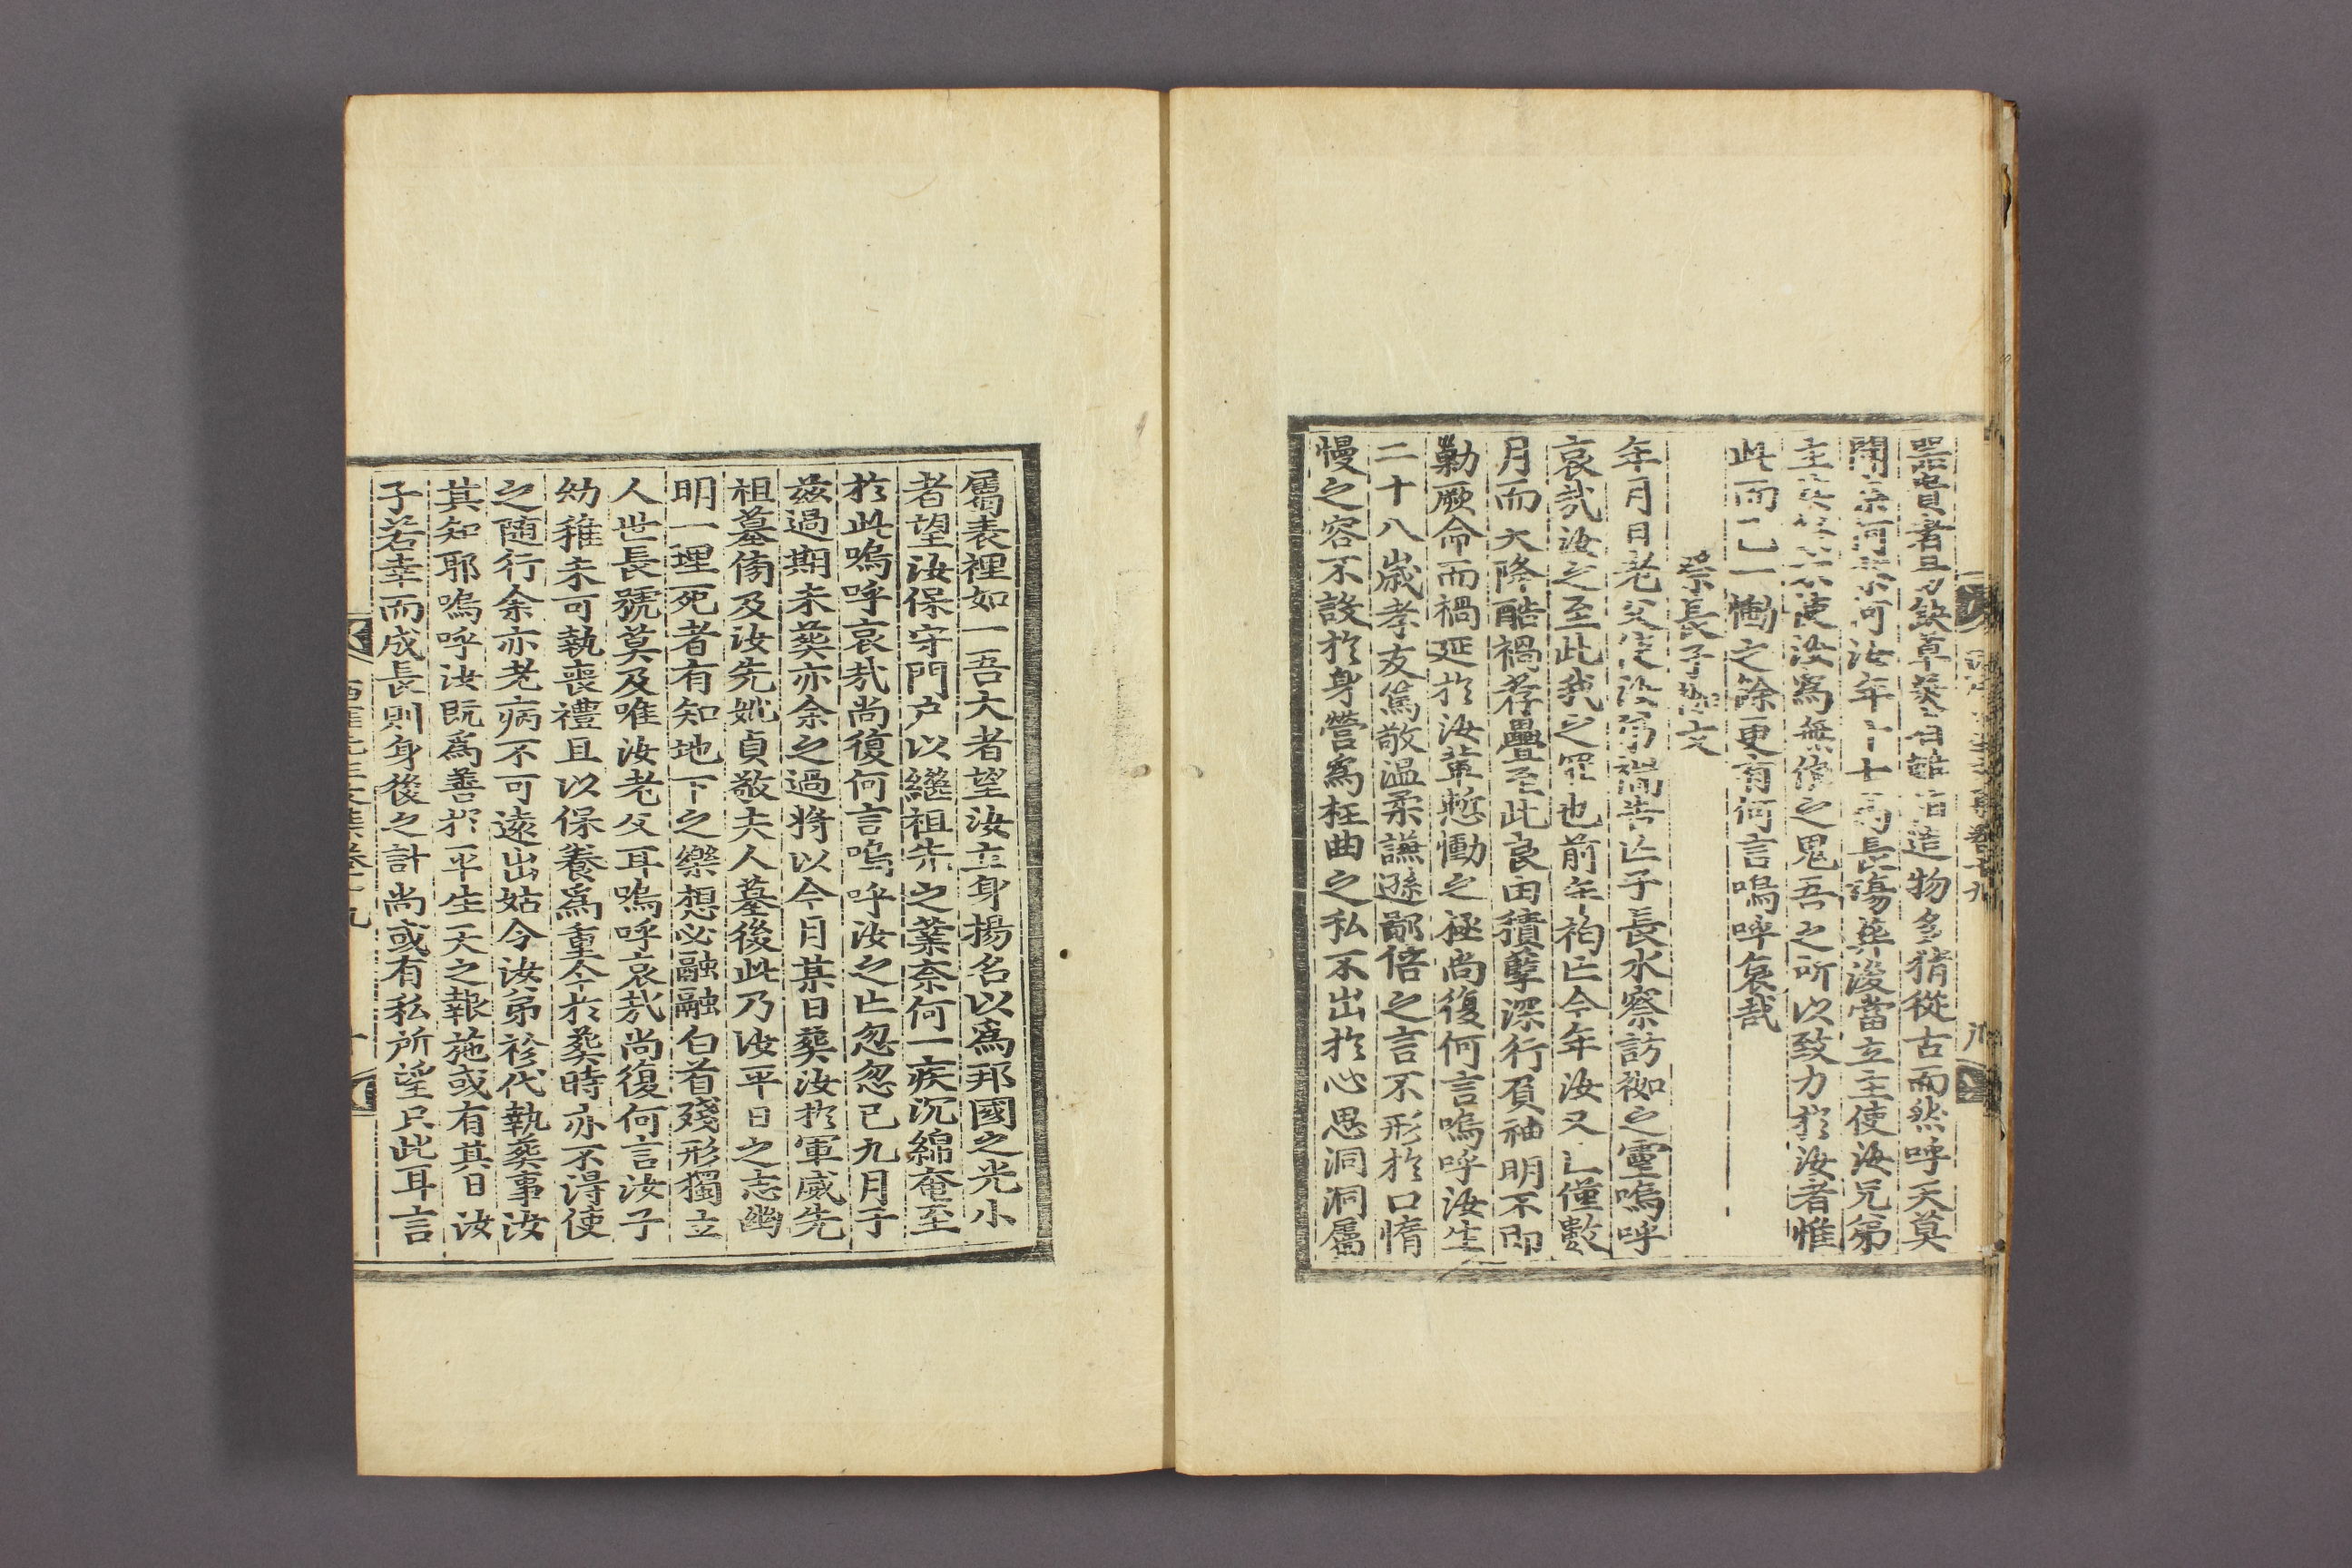 器賫者且 欽草葵 造物多猜從古而然呼天莫
聞 何 何汝年 十 爲長殤葬後當立主使汝兄弟
主 使汝爲無後之鬼吾之所以致力於汝者惟
此而已一慟之餘更有何言嗚呼哀哉
祭長子袽文
年月日老父使汝弟 告亡子長水察訪袽之靈嗚呼
哀哉汝之至此我之罪也前年袀亡今年汝又亡僅數
月而天降酷禍荐疊至此良由積孽深行負神明不卽
勦厥命而禍延於汝輩慙慟之極尚復何言嗚呼汝生
二十八歲孝友篤敬溫柔謙遜鄙倍之言不形於口惰
慢之容不設於身營爲枉曲之私不出於心思洞洞屬
屬表裡如一吾大者望汝立身揚名以爲邦國之光小
者望汝保守門戶以繼祖先之業奈何一疾沉綿奄至
於此嗚呼哀哉尚復何言嗚呼汝之亡忽忽已九月于
茲過期未葬亦余之過將以今月某日葬汝於軍威先
祖墓傍及汝先妣貞敬夫人墓後此乃汝平日之志幽
明一理死者有知地下之樂想必融融白首殘形獨立
人世長號莫及唯汝老父耳嗚呼哀哉尚復何言汝子
幼稚未可執喪禮且以保養爲重今於葬時亦不得使
之隨行余亦老病不可遠出姑令汝弟袗代執葬事汝
其知耶嗚呼汝旣爲善於平生天之報施或有其日汝
子若幸而成長則身後之計尚或有私所望只此耳言
西厓先生文集卷十九 十